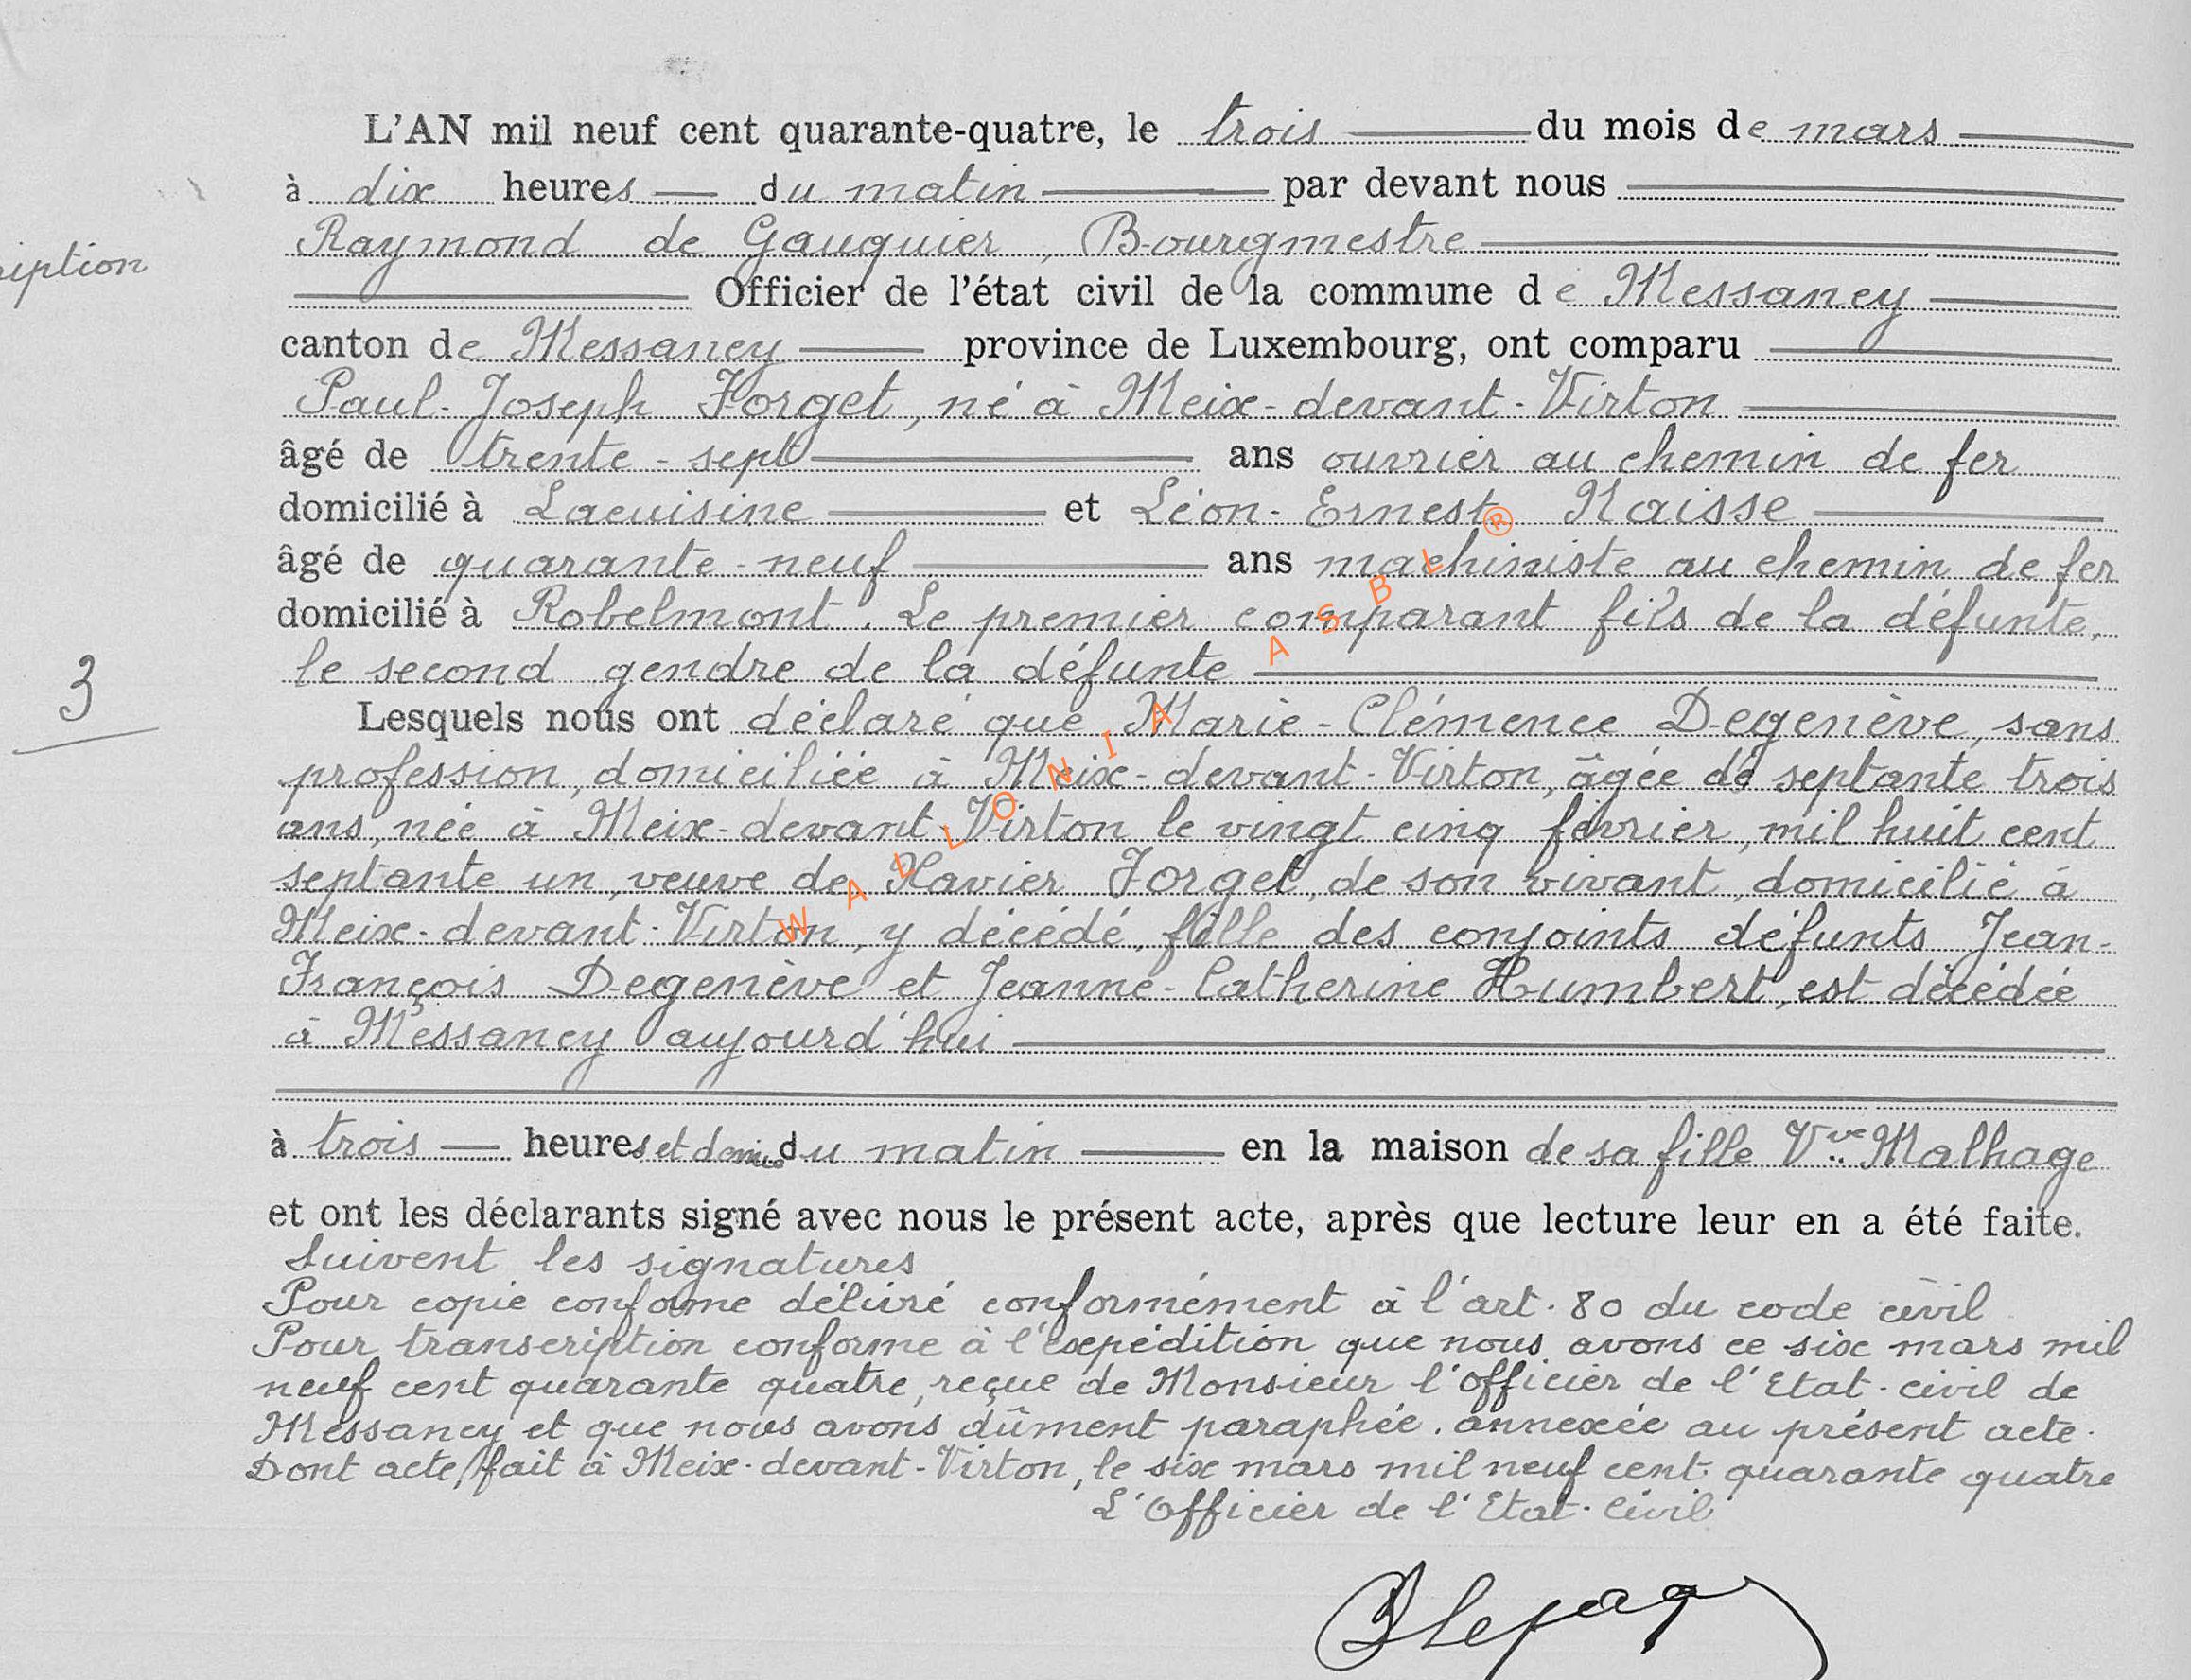 L'AN mil neuf cent quarante-quatre, le trois du mois de mars
à dix heures du matin par devant nous
Raymond de Gauquier, Bourgmestre
iption
Officier de l'état civil de la commune de Messancy
canton de Messancy province de Luxembourg, ont comparu
Paul-Joseph Forget, né à Meix-devant-Virton
âgé de trente-sept ans ouvrier au chemin de fer
domicilié à Lacuisine et Léon-Ernest Naisse
âgé de quarante-neuf ans machiniste au chemin de fer
domicilié à Robelmont. Le premier comparant fils de la défunte,
le second gendre de la défunte
3
Lesquels nous ont déclaré que Marie-Clémence Degenève, sans
profession, domiciliée à Meix-devant-Virton, âgée de septante trois
ans, née à Meix-devant-Virton le vingt cinq février, mil huit cent
septante un, veuve de Xavier Forget, de son vivant, domicilié à
Meix-devant-Virton, y décédé, fille des conjoints défunts Jean-
François Degenève et Jeanne-Catherine Humbert, est décédée
à Messancy aujourd'hui
à trois heures et demie du matin en la maison de sa fille Vve Malhage
et ont les déclarants signé avec nous le présent acte, après que lecture leur en a été faite.
Suivent les signatures
Pour copie conforme délivré conformément à l'art. 80 du code civil
Pour transcription conforme à l'expédition que nous avons ce six mars mil
neuf cent quarante quatre, reçue de Monsieur l'officier de l'Etat-civil de
Messancy et que nous avons dûment paraphée, annexée au présent acte.
Dont acte, fait à Meix-devant-Virton, le six mars mil neuf cent quarante quatre
L'Officier de l'Etat-Civil
WALLONIA ASBL ®